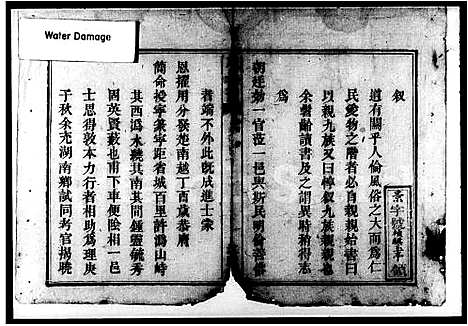 Water Damage
叙
道有關乎人倫風俗之大而為仁
民愛物之階者必自親親始書曰
以親九族又曰惇叙九族
余髫齡讀書及之謂異時稍得志
為
朝廷勅一官蒞一邑與斯民明倫善俗
者端不外此既成進士蒙
恩擢用分發楚南越丁酉歲恭膺
簡命授寧寧距省城百里許溈山峙
其西溈水繞其南英鍾靈毓秀
固英賢藪也甫下車便險相一邑
士思得敦本力行者相助為理庚
子秋余充湖南鄉試同考官揭曉